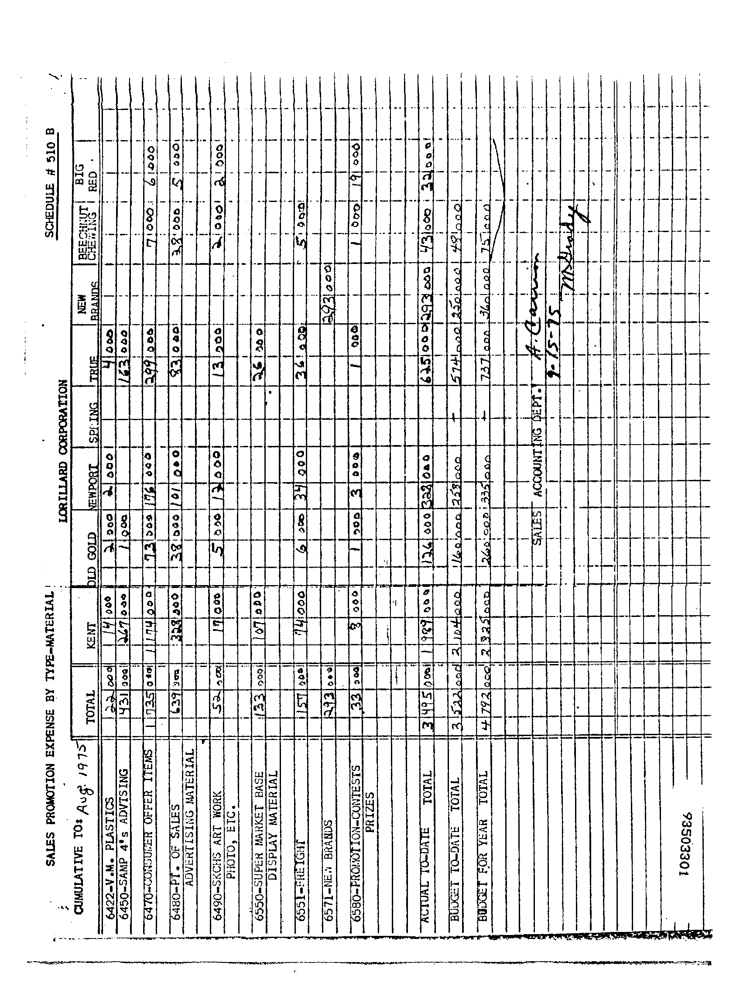 SALES PROMOTION EXPENSE BY TYPE-MATERIAL LORILLARD CORPORATION SCHEDULE # 510 B
CUMULATIVE TO: Aug. 1975 TOTAL KENT OLD GOLD NEWPORT SPRING TRUE NEW BRANDS BEECHNUT CHEWING BIG RED
6422-V.M. PLASTICS 22 000 14 000 2 000 2 000 4 000
6450-SAMP 4's ADVTSING 431 000 267 000 1 000 163 000
6470-CONSUMER OFFER ITEMS 1 735 000 1 174 000 73 000 176 000 299 000 7 000 6 000
6480-PT. OF SALES 639 000 328 000 38 000 101 000 83 000 28 000 5 000
ADVERTISING MATERIAL
6490-SKCHS ART WORK 52 000 17 000 5 000 12 000 13 000 2 000 2 000
PHOTO, ETC.
6550-SUPER MARKET BASE 133 000 107 000 26 000
DISPLAY MATERIAL
6551-FREIGHT 157 000 74 000 6 000 34 000 36 000 5 000
6571-NEW BRANDS 293 000 293 000
6580-PROMOTION-CONTESTS 33 000 8 000 1 000 3 000 1 000 1 000 19 000
PRIZES
ACTUAL TO-DATE TOTAL 3 495 000 1 989 000 126 000 328 000 625 000 293 000 43 000 32 000
BUDGET TO-DATE TOTAL 3 522 000 2 104 000 160 000 258 000 - 574 000 250 000 49 000
BUDGET FOR YEAR TOTAL 4 792 000 2 825 000 260 000 335 000 - 737 000 360 000 75 000
SALES ACCOUNTING DEPT.
9-15-75
93503301